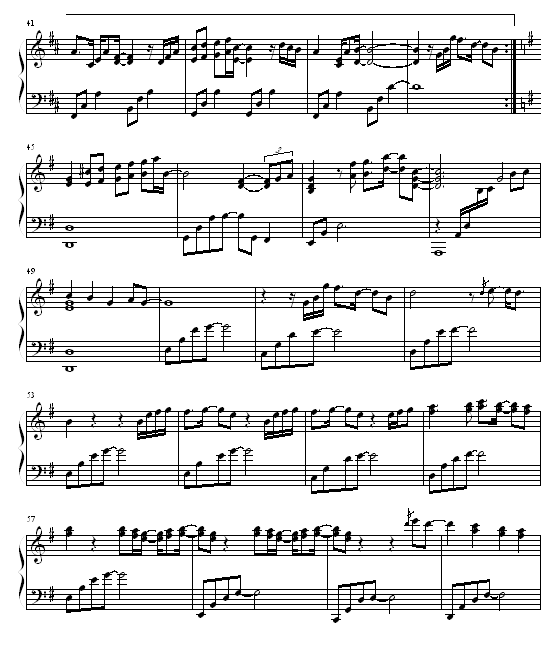 41
45
3
49
53
57